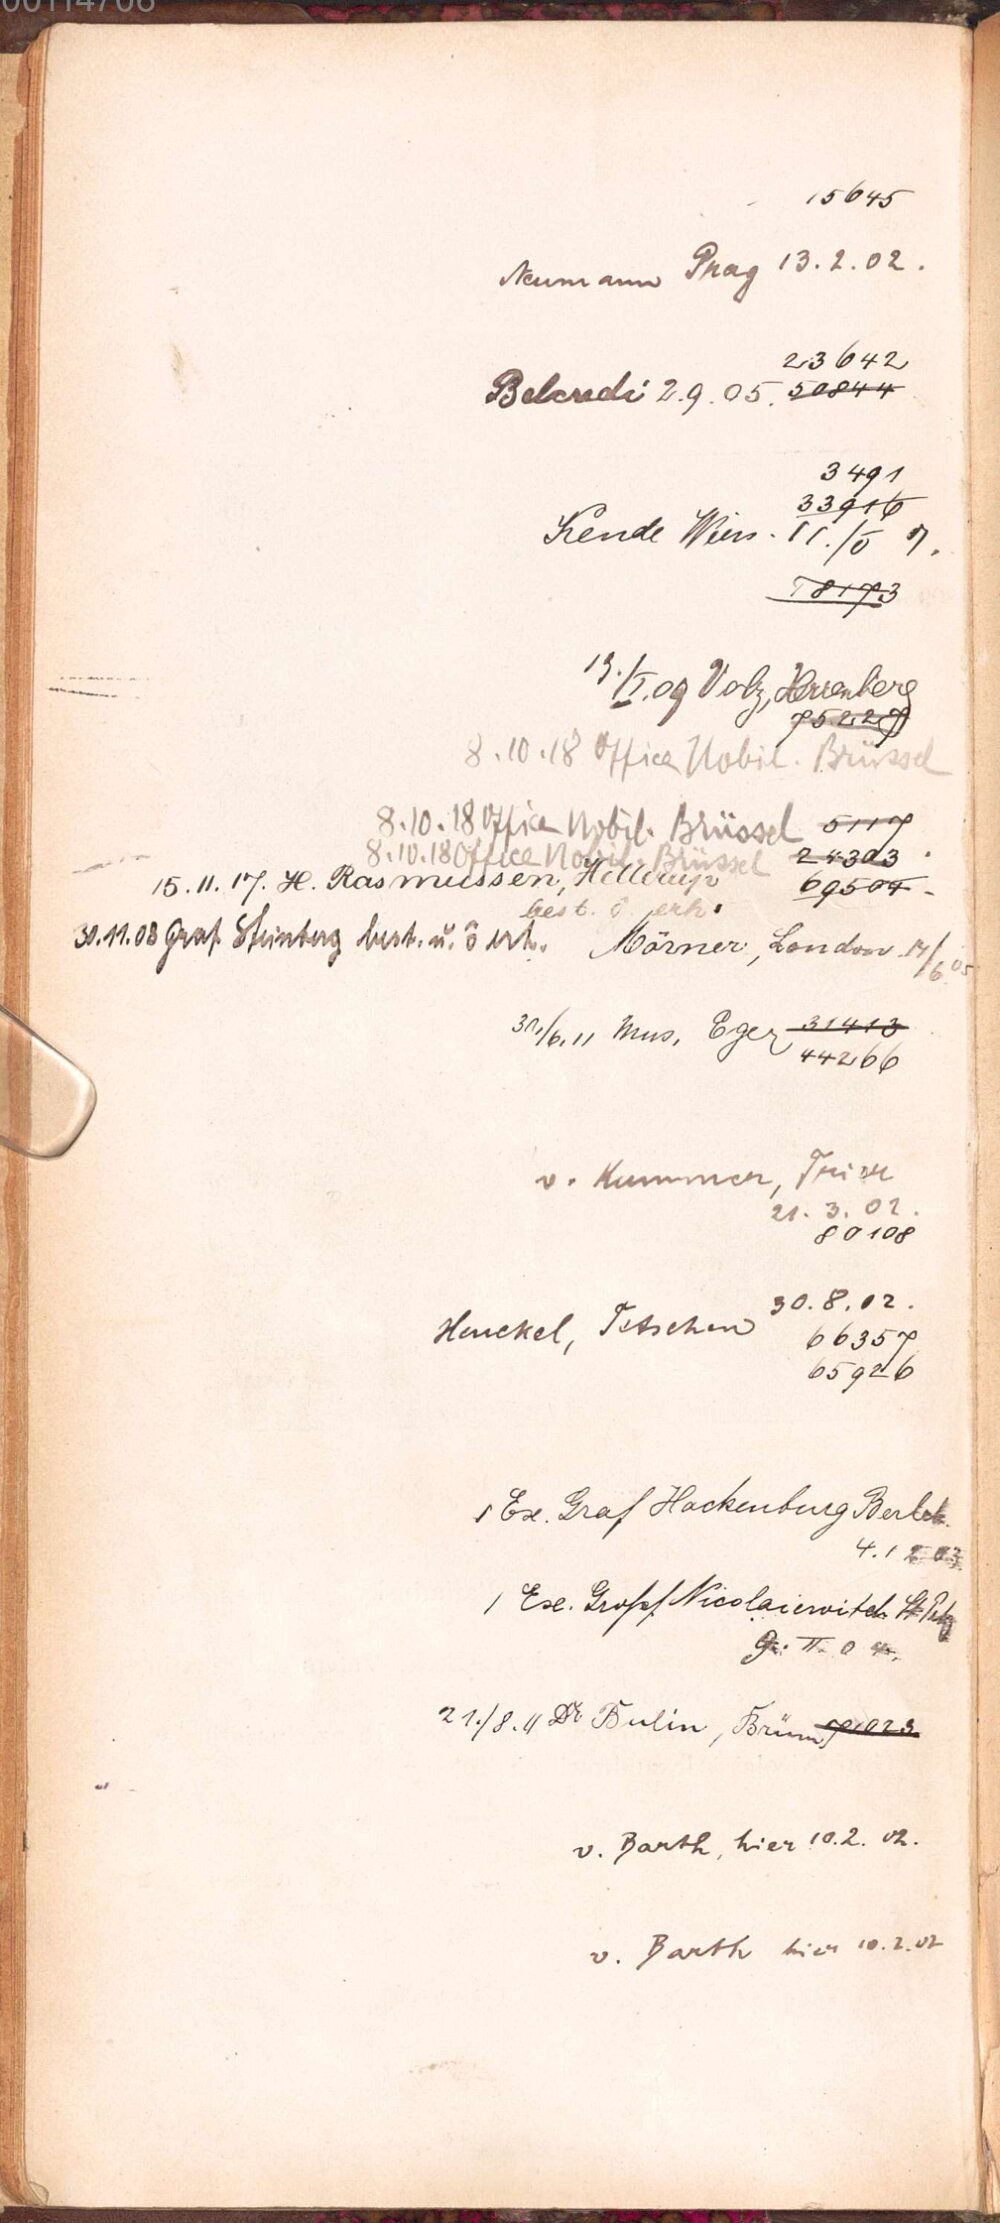 00114706
15645
Neumann Prag 13.2.02.
23642
Belcredi 2.9.05. 50844
3491
33916
Kende Wien. 11./5 7.
78173
19./I.09 Volz, Herrenberg
75227
8.10.18 Office Nobil. Brüssel
8.10.18 Office Nobil. Brüssel 5117
8.10.18 Office Nobil. Brüssel 24303
15.11.17. H. Rasmussen, Hellerup 69504
best. ô erh.
30.11.08 Graf Steinberg best. u. ô erh. Mörner, London 14/6 05
31./6.11 Mus. Eger 31413
44266
v. Kummer, Trier
21.3.02.
80108
Henckel, Tetschen 30.8.02.
66357
65926
1 Ex. Graf Hackenburg
4.1
1 Ex. Großf. Nicolaiewitch
9. II. 04.
21./8.11 Dr Bulin, Brünn
v. Barth, hier 10.2.02.
v. Barth hier 10.2.02